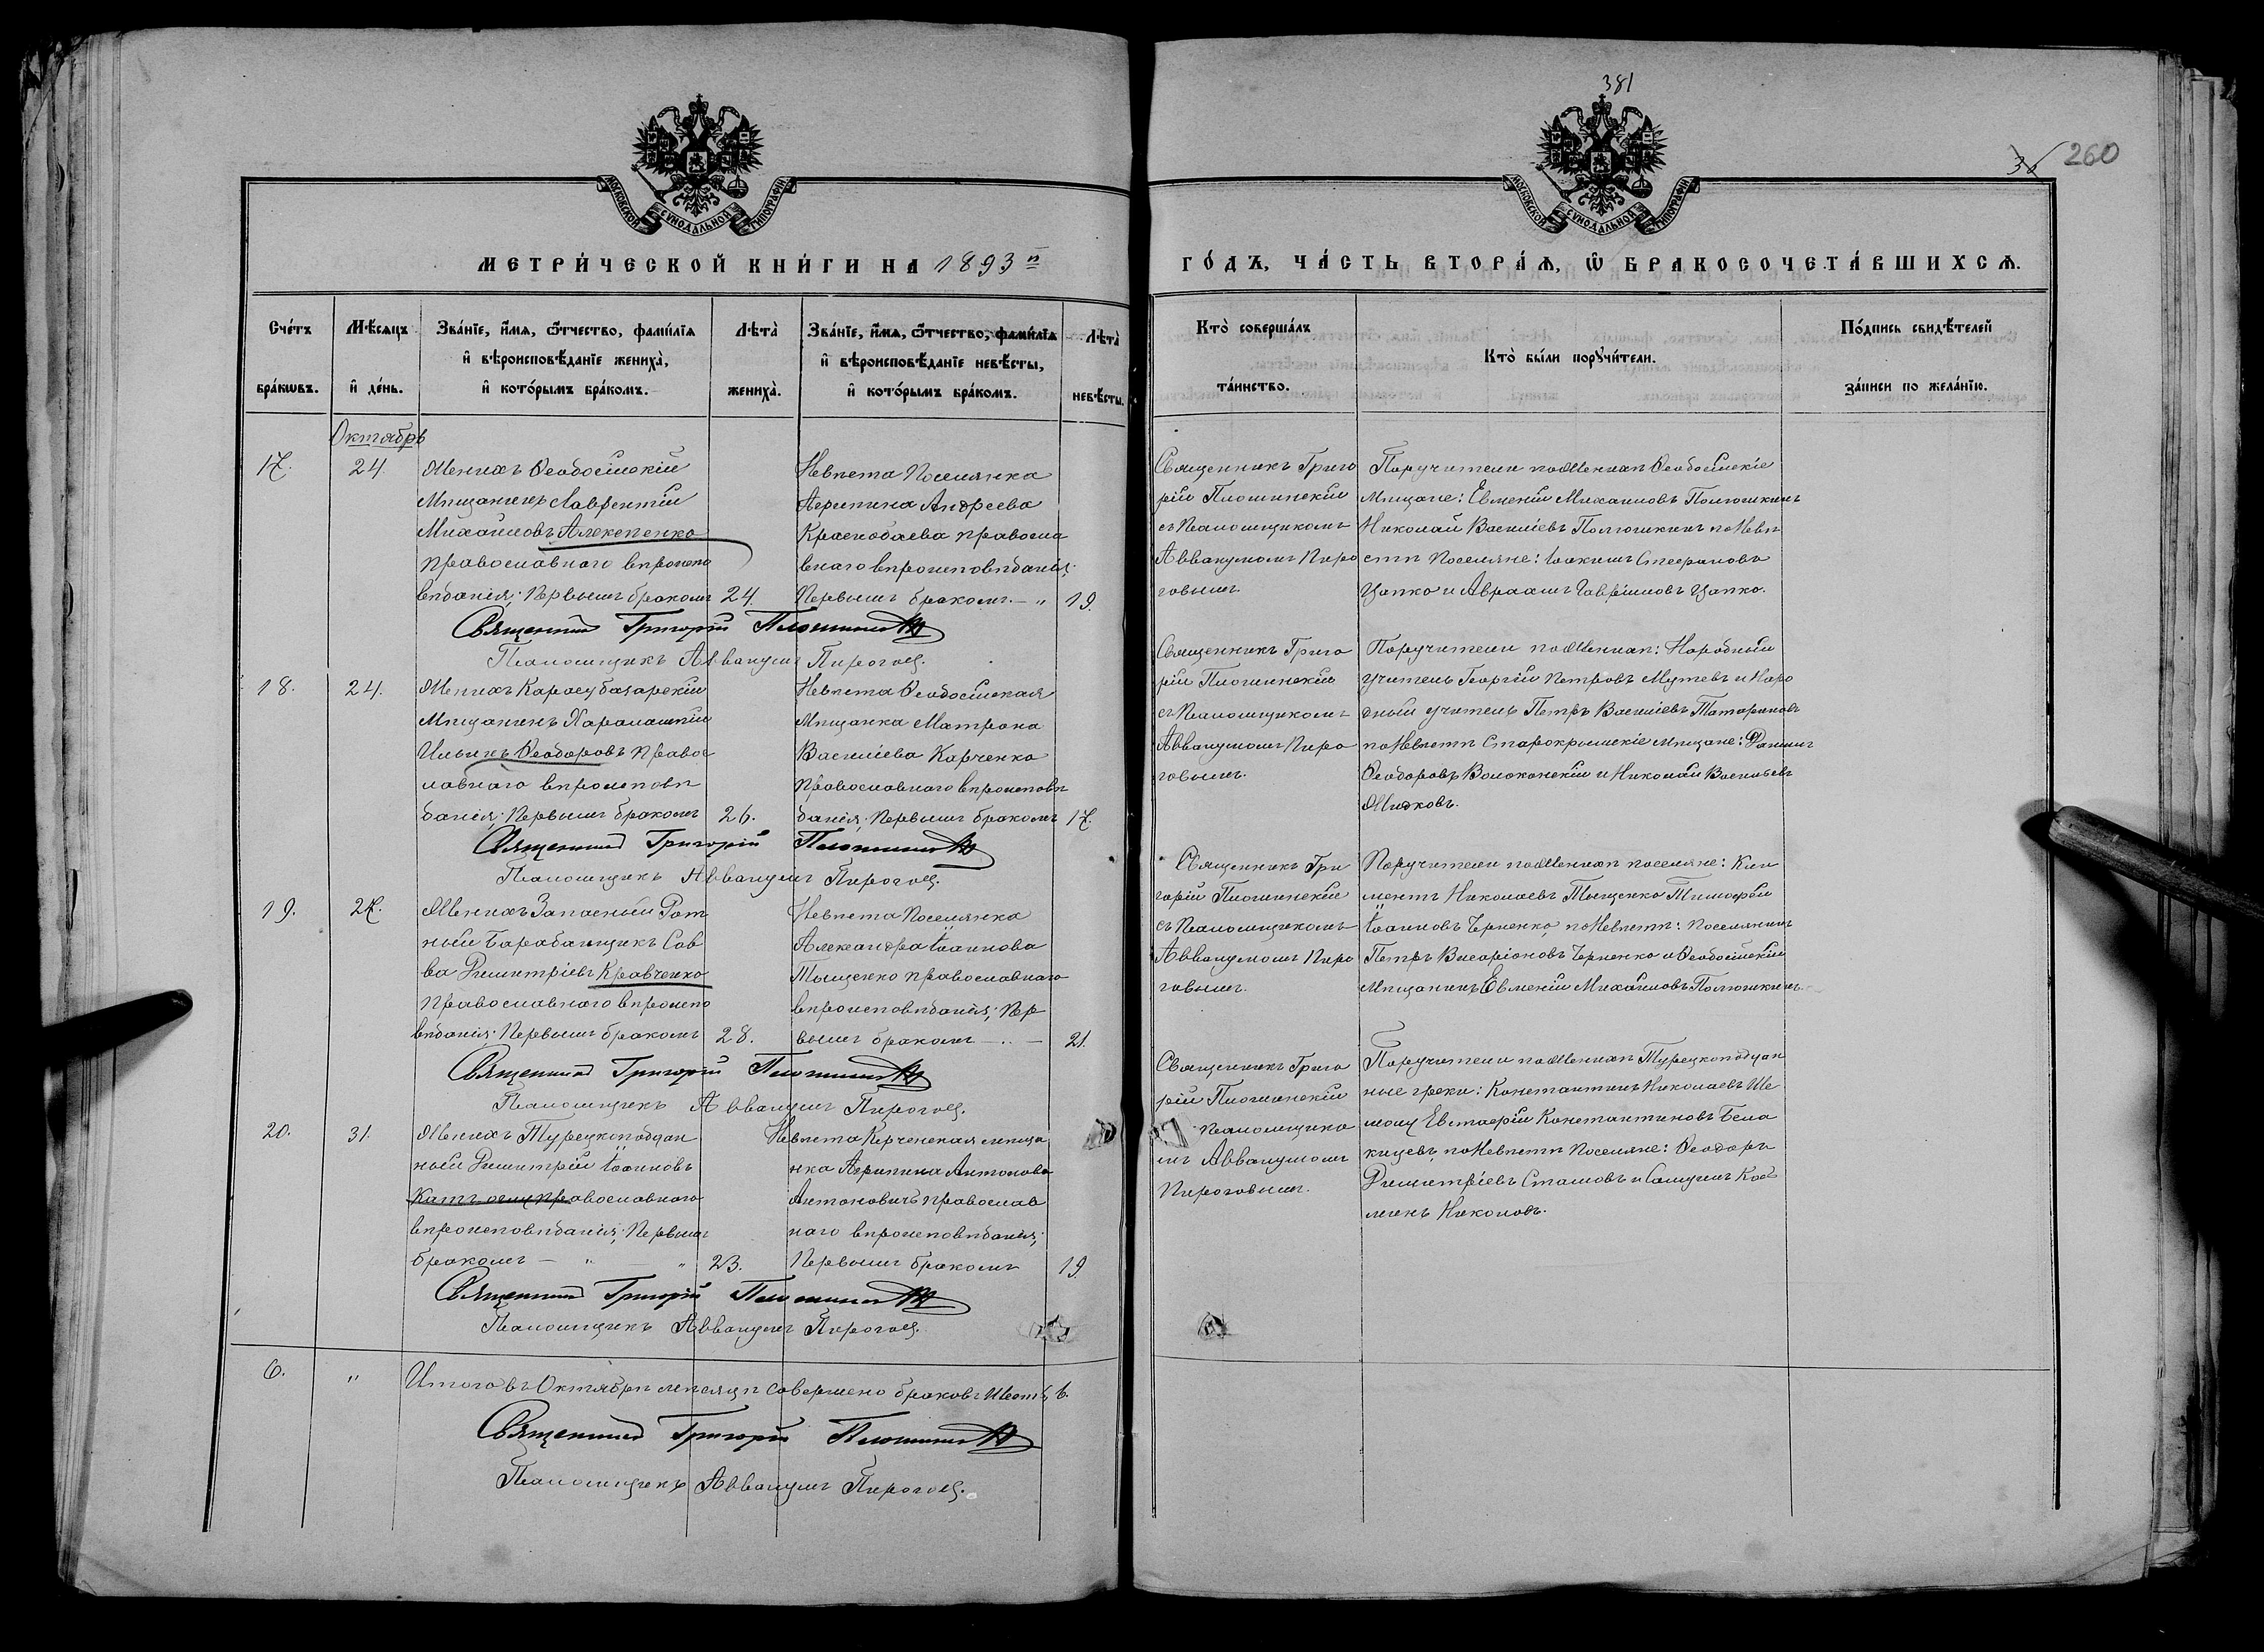 381
30 260
МОСКОВСКОЙ СѴНОДАЛЬНОЙ ТИПОГРАФІИ
МОСКОВСКОЙ СѴНОДАЛЬНОЙ ТИПОГРАФІИ
МЕТРИ́ЧЕСКОЙ КНИ́ГИ НА 1893 й
ГО́ДЪ, ЧА́СТЬ ВТОРА́Ѧ, Ѿ БРАКОСОЧЕТА́ВШИХСѦ.
Сче́тъ бра́кѡвъ.
Мѣ́сяцъ и҆ де́нь.
Зва́нїе, и҆́мѧ, ѻ҆́тчество, фами́лїѧ
и҆ вѣроисповѣ́данїе жениха̀,
и҆ кото́рымъ бра́комъ.
Лѣта̀ жениха̀.
Зва́нїе, и҆́мѧ, ѻ҆́тчество, фами́лїѧ
и҆ вѣроисповѣ́данїе невѣ́сты,
и҆ кото́рымъ бра́комъ.
Лѣта̀ невѣ́сты.
Кто̀ соверша́лъ та́инство.
Кто̀ бы́ли порꙋчи́тели.
По́дпись свидѣ́телей за́писи по жела́нїю.
Октябрь
17. 24.
Женихъ Ѳеодосійскій
Мѣщанинъ Лаврентій
Михаиловъ Алексѣенко
православнаго вѣроиспо
вѣданія; Первымъ бракомъ 24.
Невѣста Поселянка
Агрипина Андреева
Краснобаева правосла
внаго вѣроисповѣданія;
Первымъ бракомъ.— „ 19.
Священникъ Григо
рій Плошинскій
съ Псаломщикомъ
Аввакумомъ Пиро
говымъ.
Поручители по Женихѣ Ѳеодосійскіе
Мѣщане: Евменій Михаиловъ Полюшкинъ
Николай Василіевъ Полюшкинъ по Невѣ
стѣ Поселяне: Іоакимъ Стефановъ
Цапко и Авраамъ Гавріиловъ Цапко.
Священникъ Григорій Плошинскій
Псаломщикъ Аввакумъ Пироговъ.
18. 24.
Женихъ Карасубазарскій
Мѣщанинъ Харалампій
Ильинъ Ѳеодоровъ Правос
лавнаго вѣроисповѣ
данія; Первымъ бракомъ 26.
Невѣста Ѳеодосійская
Мѣщанка Матрона
Василіева Карченко
Православнаго вѣроисповѣ
данія; Первымъ бракомъ 17.
Священникъ Григо
рій Плошинскій
съ Псаломщикомъ
Аввакумомъ Пиро
говымъ.
Поручители по Женихѣ: Народный
учитель Георгій Петровъ Мутевъ и Наро
дный учитель Петръ Василіевъ Татариновъ
по Невѣстѣ Старокрымскіе мѣщане: Даніилъ
Ѳеодоровъ Волоконскій и Николай Васильевъ
Жидковъ.
Священникъ Григорій Плошинскій
Псаломщикъ Аввакумъ Пироговъ.
19. 27.
Женихъ Запасный Рот
ный Барабанщикъ Сав
ва Димитріевъ Кравченко
православнаго вѣроиспо
вѣданія; Первымъ бракомъ 28.
Невѣста Поселянка
Александра Іоаннова
Тыщенко православнаго
вѣроисповѣданія; Пер
вымъ бракомъ — „ — 21.
Священникъ Гри
горій Плошинскій
съ Псаломщикомъ
Аввакумомъ Пиро
говымъ.
Поручители по Женихѣ поселяне: Кли
ментъ Николаевъ Тыщенко Тимофей
Іоанновъ Черненко по Невѣстѣ: Поселянинъ
Петръ Висаріоновъ Черненко и Ѳеодосійскій
Мѣщанинъ Евменій Михаиловъ Полюшкинъ.
Священникъ Григорій Плошинскій
Псаломщикъ Аввакумъ Пироговъ.
20. 31.
Женихъ Турецкоподдан
ный Димитрій Іоанновъ
православнаго
вѣроисповѣданія; Первымъ
бракомъ — „ — „ 23.
Невѣста Керченская мѣща
нка Агрипина Антонова
Антоновичъ православ
наго вѣроисповѣданія;
Первымъ бракомъ 19.
Священникъ Григо
рій Плошинскій
Псаломщико
мъ Аввакумомъ
Пироговымъ.
Поручители по Женихѣ Турецкоподдан
ные греки: Константинъ Николаевъ
Евстафій Константиновъ
по Невѣстѣ Поселяне: Ѳеодоръ
Димитріевъ Стамовъ и Самуилъ
Николовъ.
Священникъ Григорій Плошинскій
Псаломщикъ Аввакумъ Пироговъ.
6. „ Итого въ Октябрѣ мѣсяцѣ совершено браковъ Шесть, 6.
Священникъ Григорій Плошинскій
Псаломщикъ Аввакумъ Пироговъ.